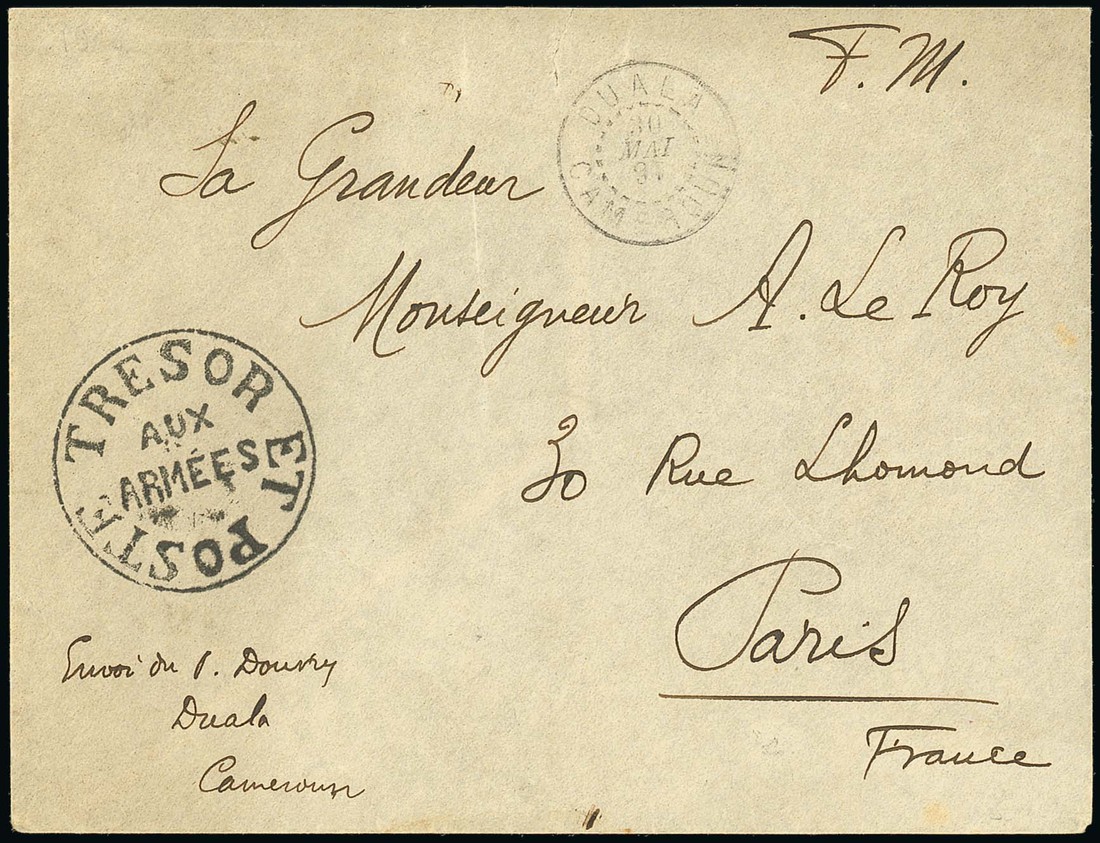 F. M.
DUALA
30
MAI
CAMEROUN
Sa Grandeur
Monseigneur A. Le Roy
30 Rue Lhomond
Paris
France
TRESOR ET POSTE
AUX
ARMÉES
Envoi du P. Douvry
Duala
Cameroun